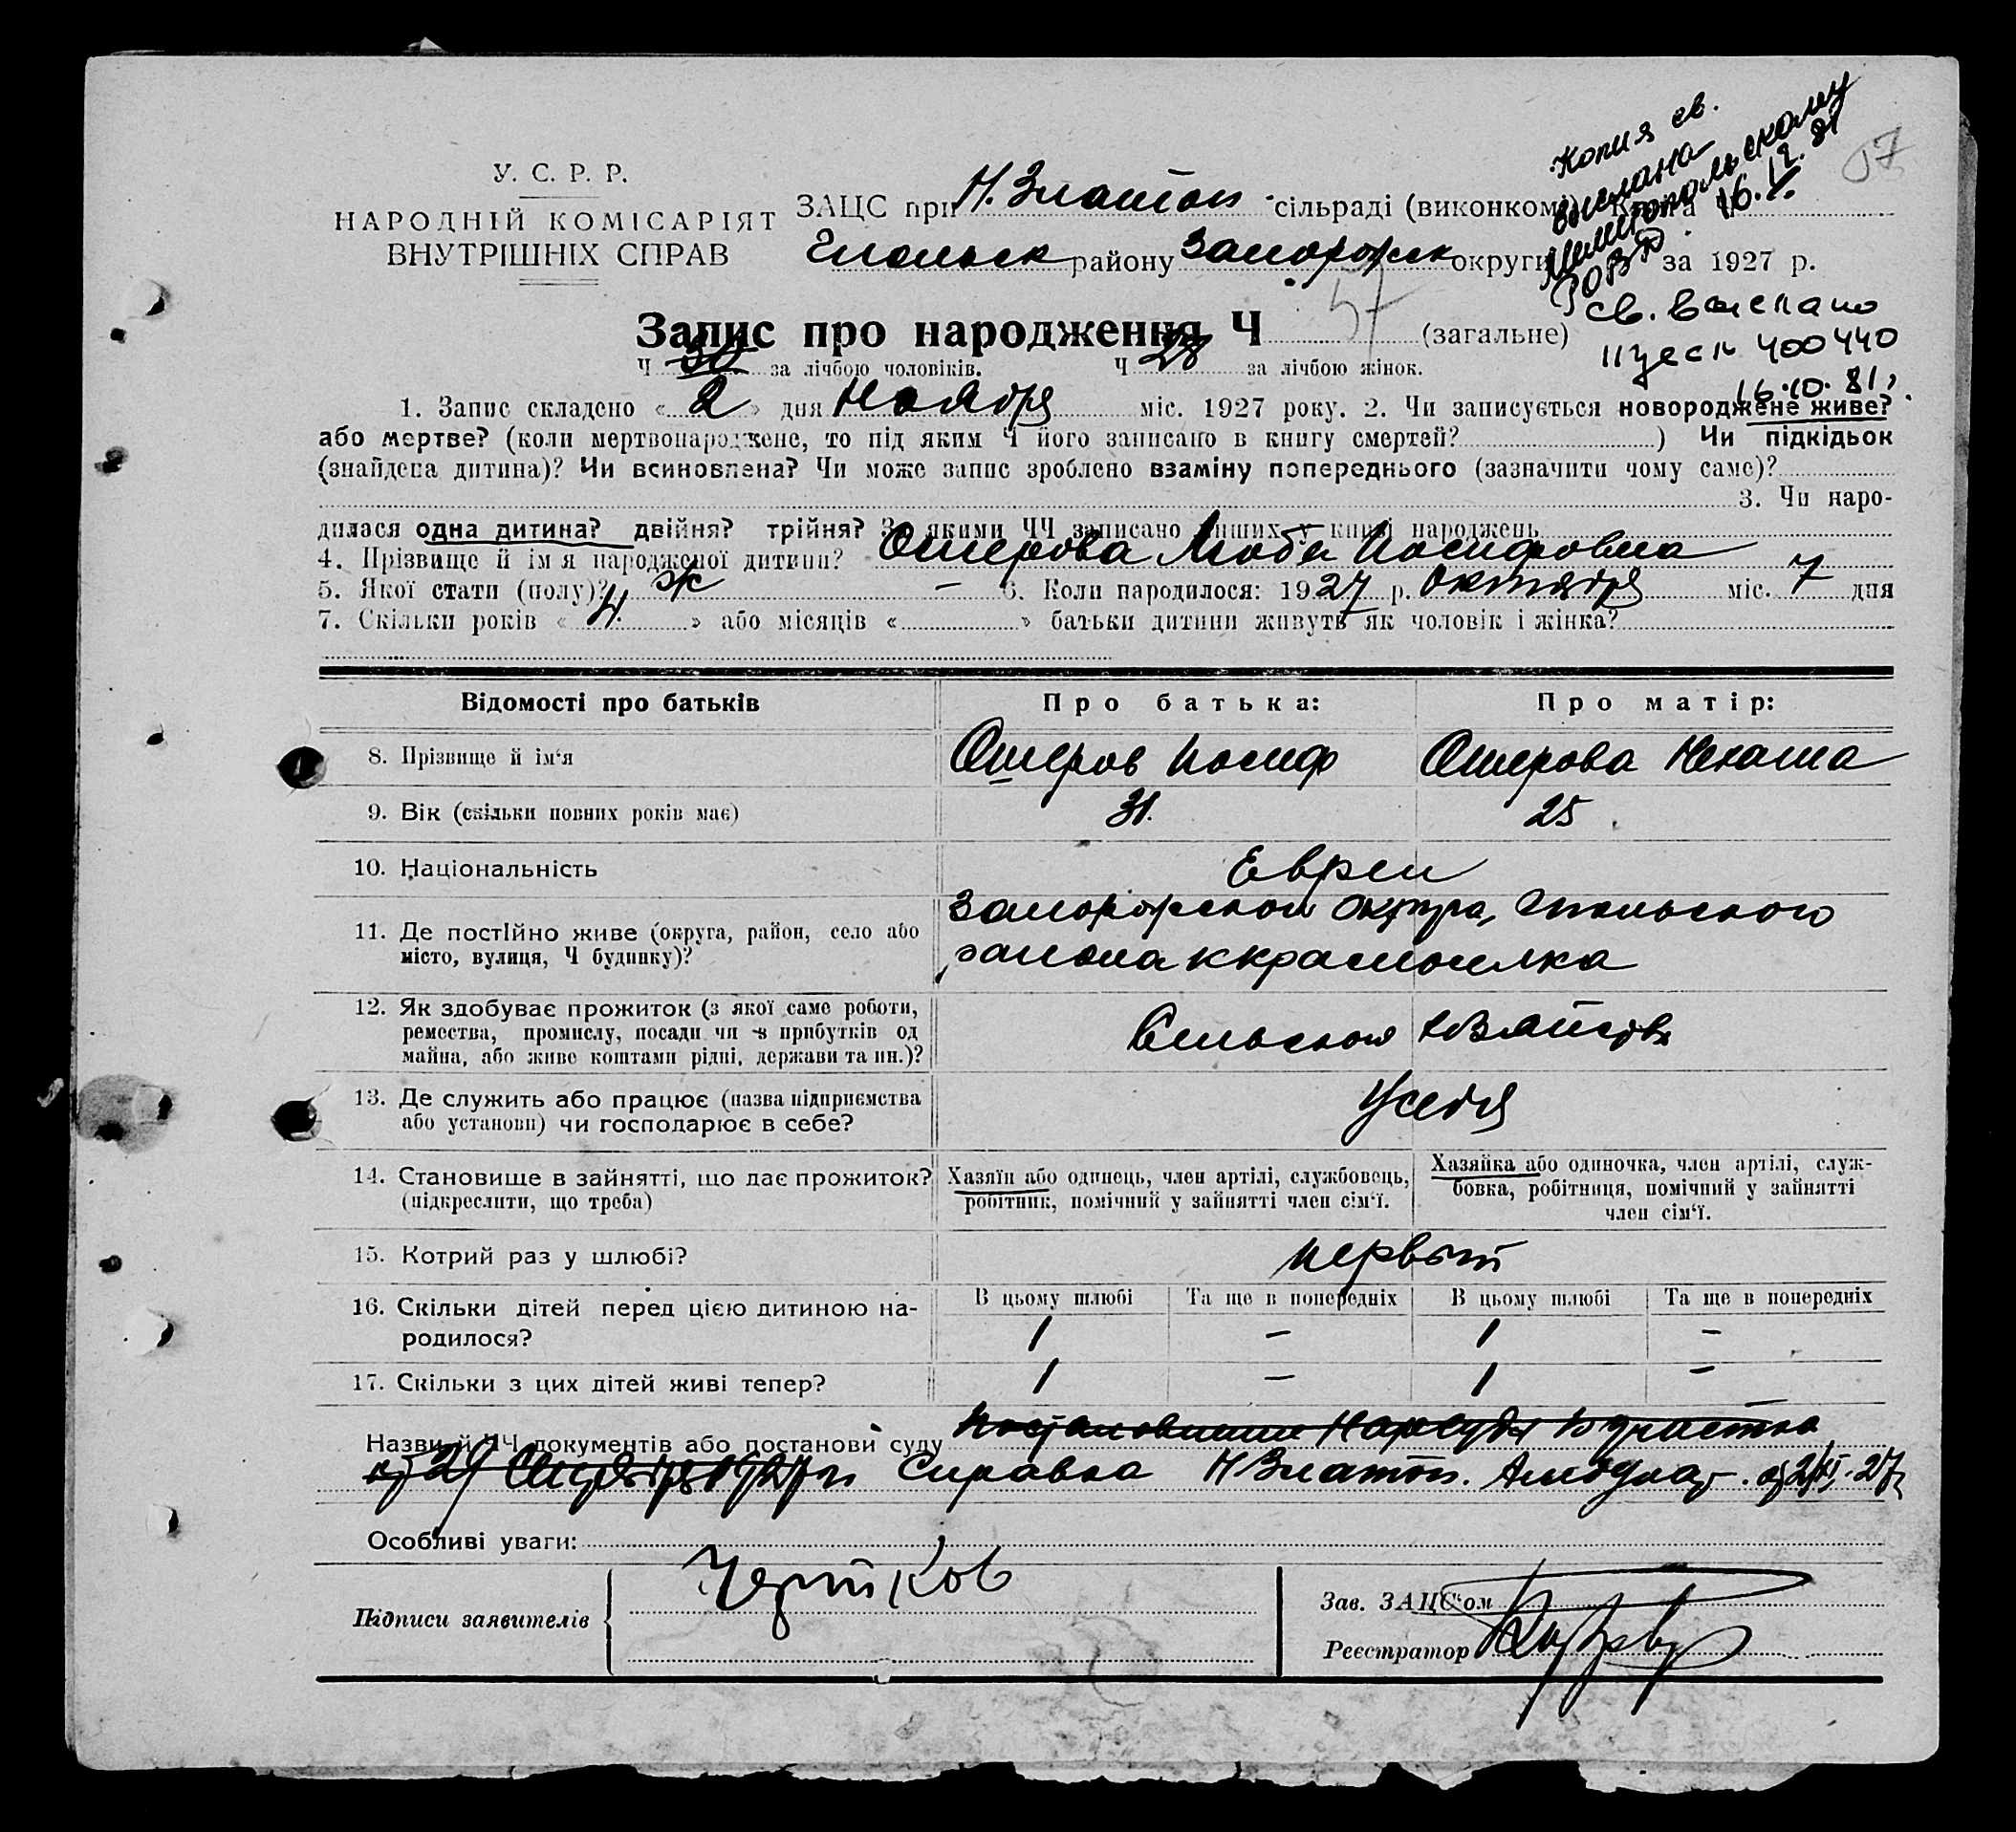 Копия св.
выслана
Мелитопольскому
РОВД. 16.12.81
57
У. С. Р. Р.
НАРОДНІЙ КОМІСАРІЯТ
ВНУТРІШНІХ СПРАВ
ЗАЦС при Н. Златоп сільраді (виконкомі) Книга
району Запорожск округи за 1927 р.
св. выслано
400440
16.10.81.
Запис про народження Ч 57 (загальне)
Ч 30 за лічбою чоловіків. Ч 28 за лічбою жінок.
1. Запис складено « 2 » дня Ноября міс. 1927 року. 2. Чи записується новороджене живе?
або мертве? (коли мертвонароджене, то під яким Ч його записано в книгу смертей? ) Чи підкідьок
(знайдена дитина)? Чи всиновлена? Чи може запис зроблено взаміну попереднього (зазначити чому саме)?
3. Чи наро-
дилася одна дитина? двійня? трійня? За якими ЧЧ записано інших у книзі народжень
4. Прізвище й ім'я народженої дитини? Ошерова Люба Иосифовна
5. Якої стати (полу)? ж – 6. Коли народилося: 1927 р. Октября міс. 7 дня
7. Скільки років « 4 » або місяців « » батьки дитини живуть як чоловік і жінка?
Відомості про батьків Про батька: Про матір:
8. Прізвище й ім'я Ошеров Иосиф Ошерова
9. Вік (скільки повних років має) 31. 25.
10. Національність Евреи
11. Де постійно живе (округа, район, село або Запорожской округа,
місто, вулиця, Ч будинку)? района
12. Як здобуває прожиток (з якої саме роботи,
ремества, промислу, посади чи з прибутків од Сельское хозяйство
майна, або живе коштами рідні, держави та ин.)?
13. Де служить або працює (назва підприємства У себя
або установи) чи господарює в себе?
14. Становище в зайнятті, що дає прожиток? Хазяїн або одинець, член артілі, службовець, Хазяйка або одиночка, член артілі, служ-
(підкреслити, що треба) робітник, помічний у зайнятті член сім'ї. бовка, робітниця, помічний у зайнятті
член сім'ї.
15. Котрий раз у шлюбі? первый
16. Скільки дітей перед цією дитиною на- В цьому шлюбі Та ще в попередніх В цьому шлюбі Та ще в попередніх
родилося? 1 – 1 –
17. Скільки з цих дітей живі тепер? 1 – 1 –
Назви й ЧЧ документів або постанови суду Постановление Нарсуда участка
от 29 1927 г. Справка Н Златоп. Амбулат. от 2/XI-27 г.
Особливі уваги:
Підписи заявителів Чертков Зав. ЗАЦС'ом
Реєстратор